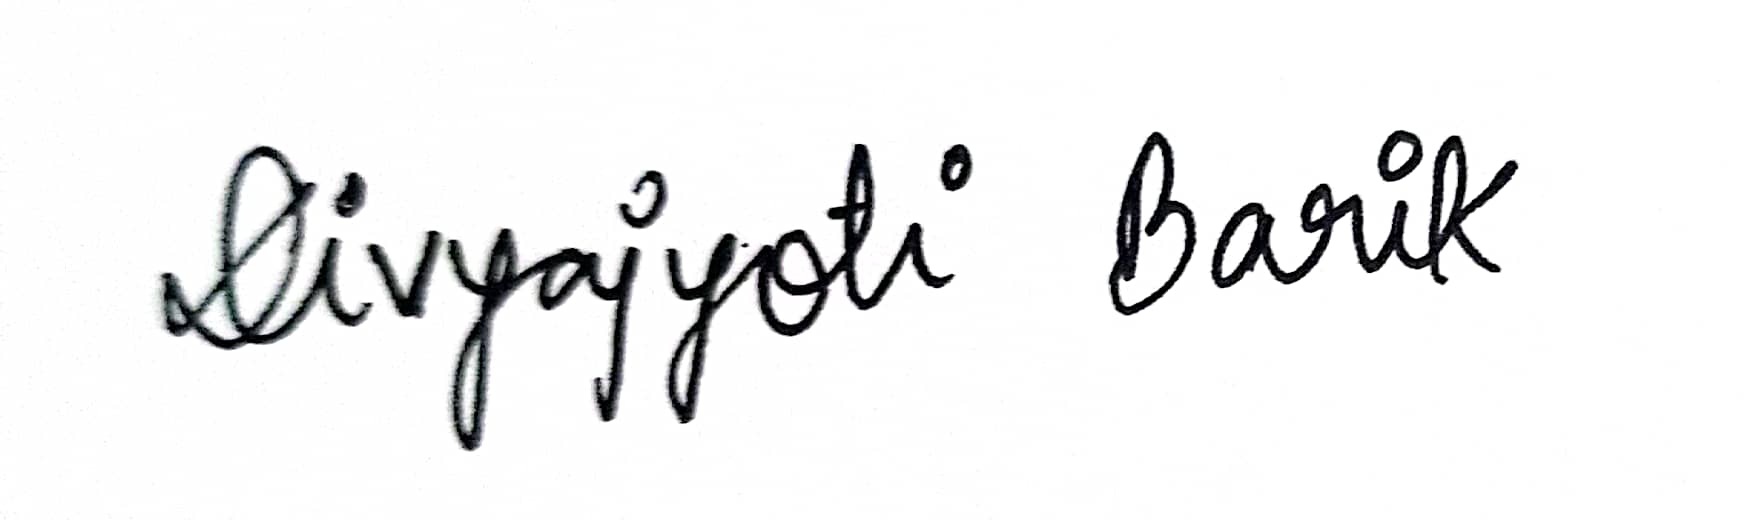 Divyajyoti Barik